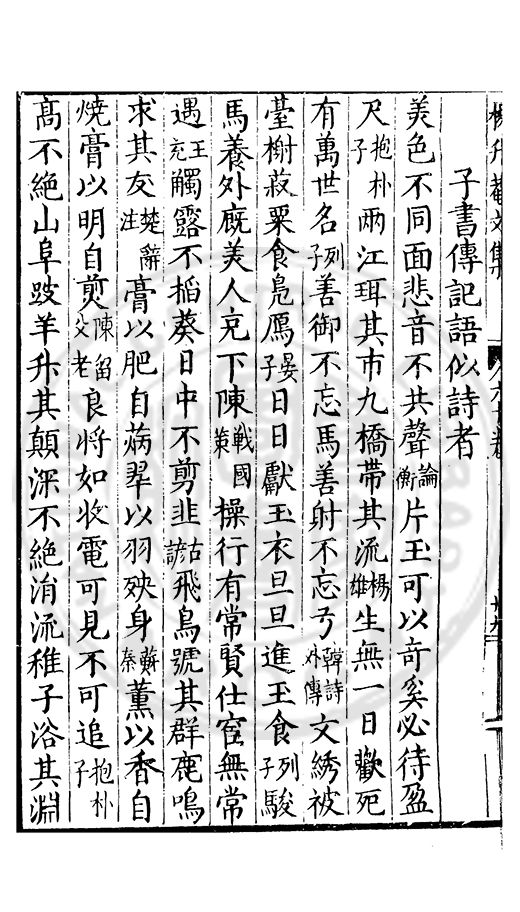 楊升菴文集
子書傳記語似詩者
美色不同面悲音不共聲論衡片玉可以竒奚必待盈
尺抱朴子兩江珥其市九橋帶其流楊雄生無一日歡死
有萬世名列子善御不忘馬善射不忘弓韓詩外傳文綉被
臺榭菽粟食鳬鴈晏子日日獻玉衣旦旦進玉食列子駿
馬養外廐美人充下陳戰國策操行有常賢仕宦無常
遇王充觸露不搯葵日中不剪韭古諺飛鳥號其群鹿鳴
求其友楚辭注膏以肥自焫翠以羽殃身蘇秦薰以香自
燒膏以明自煎陳留父老良將如收電可見不可追抱朴子
高不絶山阜跛羊升其顛深不絶涓流稚子浴其淵